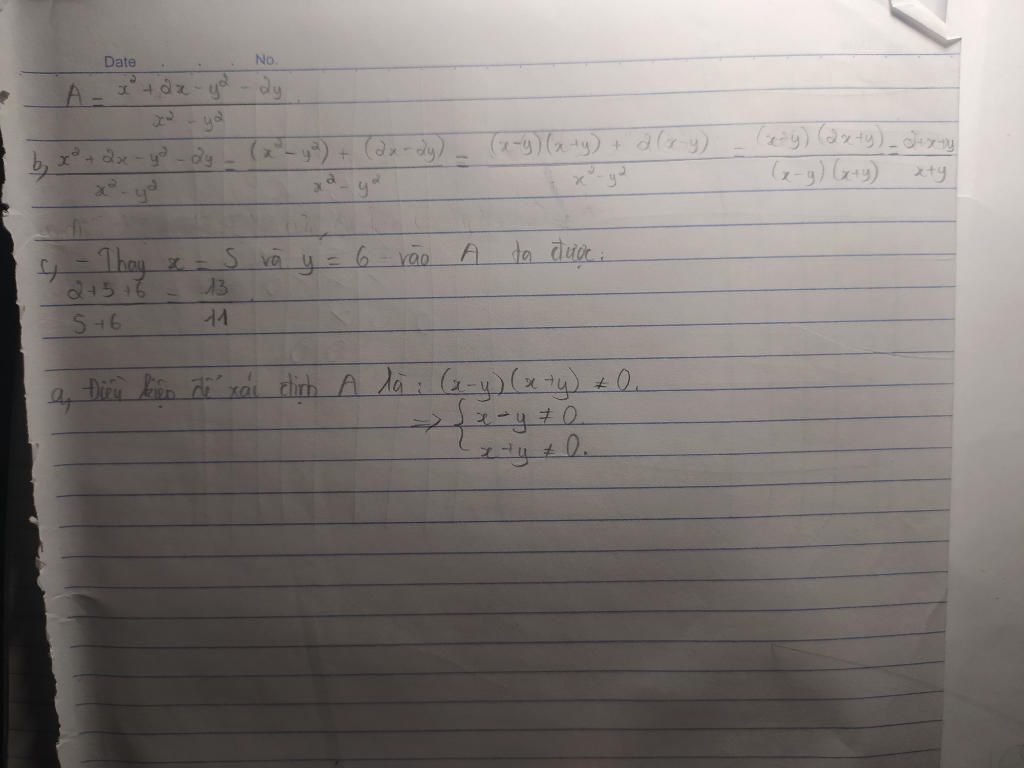 Date . . . No.
A = \frac{x² + 2x - y² - 2y}{x² - y²}
b, \frac{x² + 2x - y² - 2y}{x² - y²} = \frac{(x² - y²) + (2x - 2y)}{x² - y²} = \frac{(x-y)(x+y) + 2(x-y)}{x² - y²} = \frac{(x-y)(2x+y)}{(x-y)(x+y)} = \frac{2+x+y}{x+y}
c, - Thay x = 5 và y = 6 vào A ta được:
\frac{2+5+6}{5+6} = \frac{13}{11}.
a, Điều kiện để xác định A là: (x-y)(x+y) ≠ 0.
=> { x - y ≠ 0.
x + y ≠ 0.